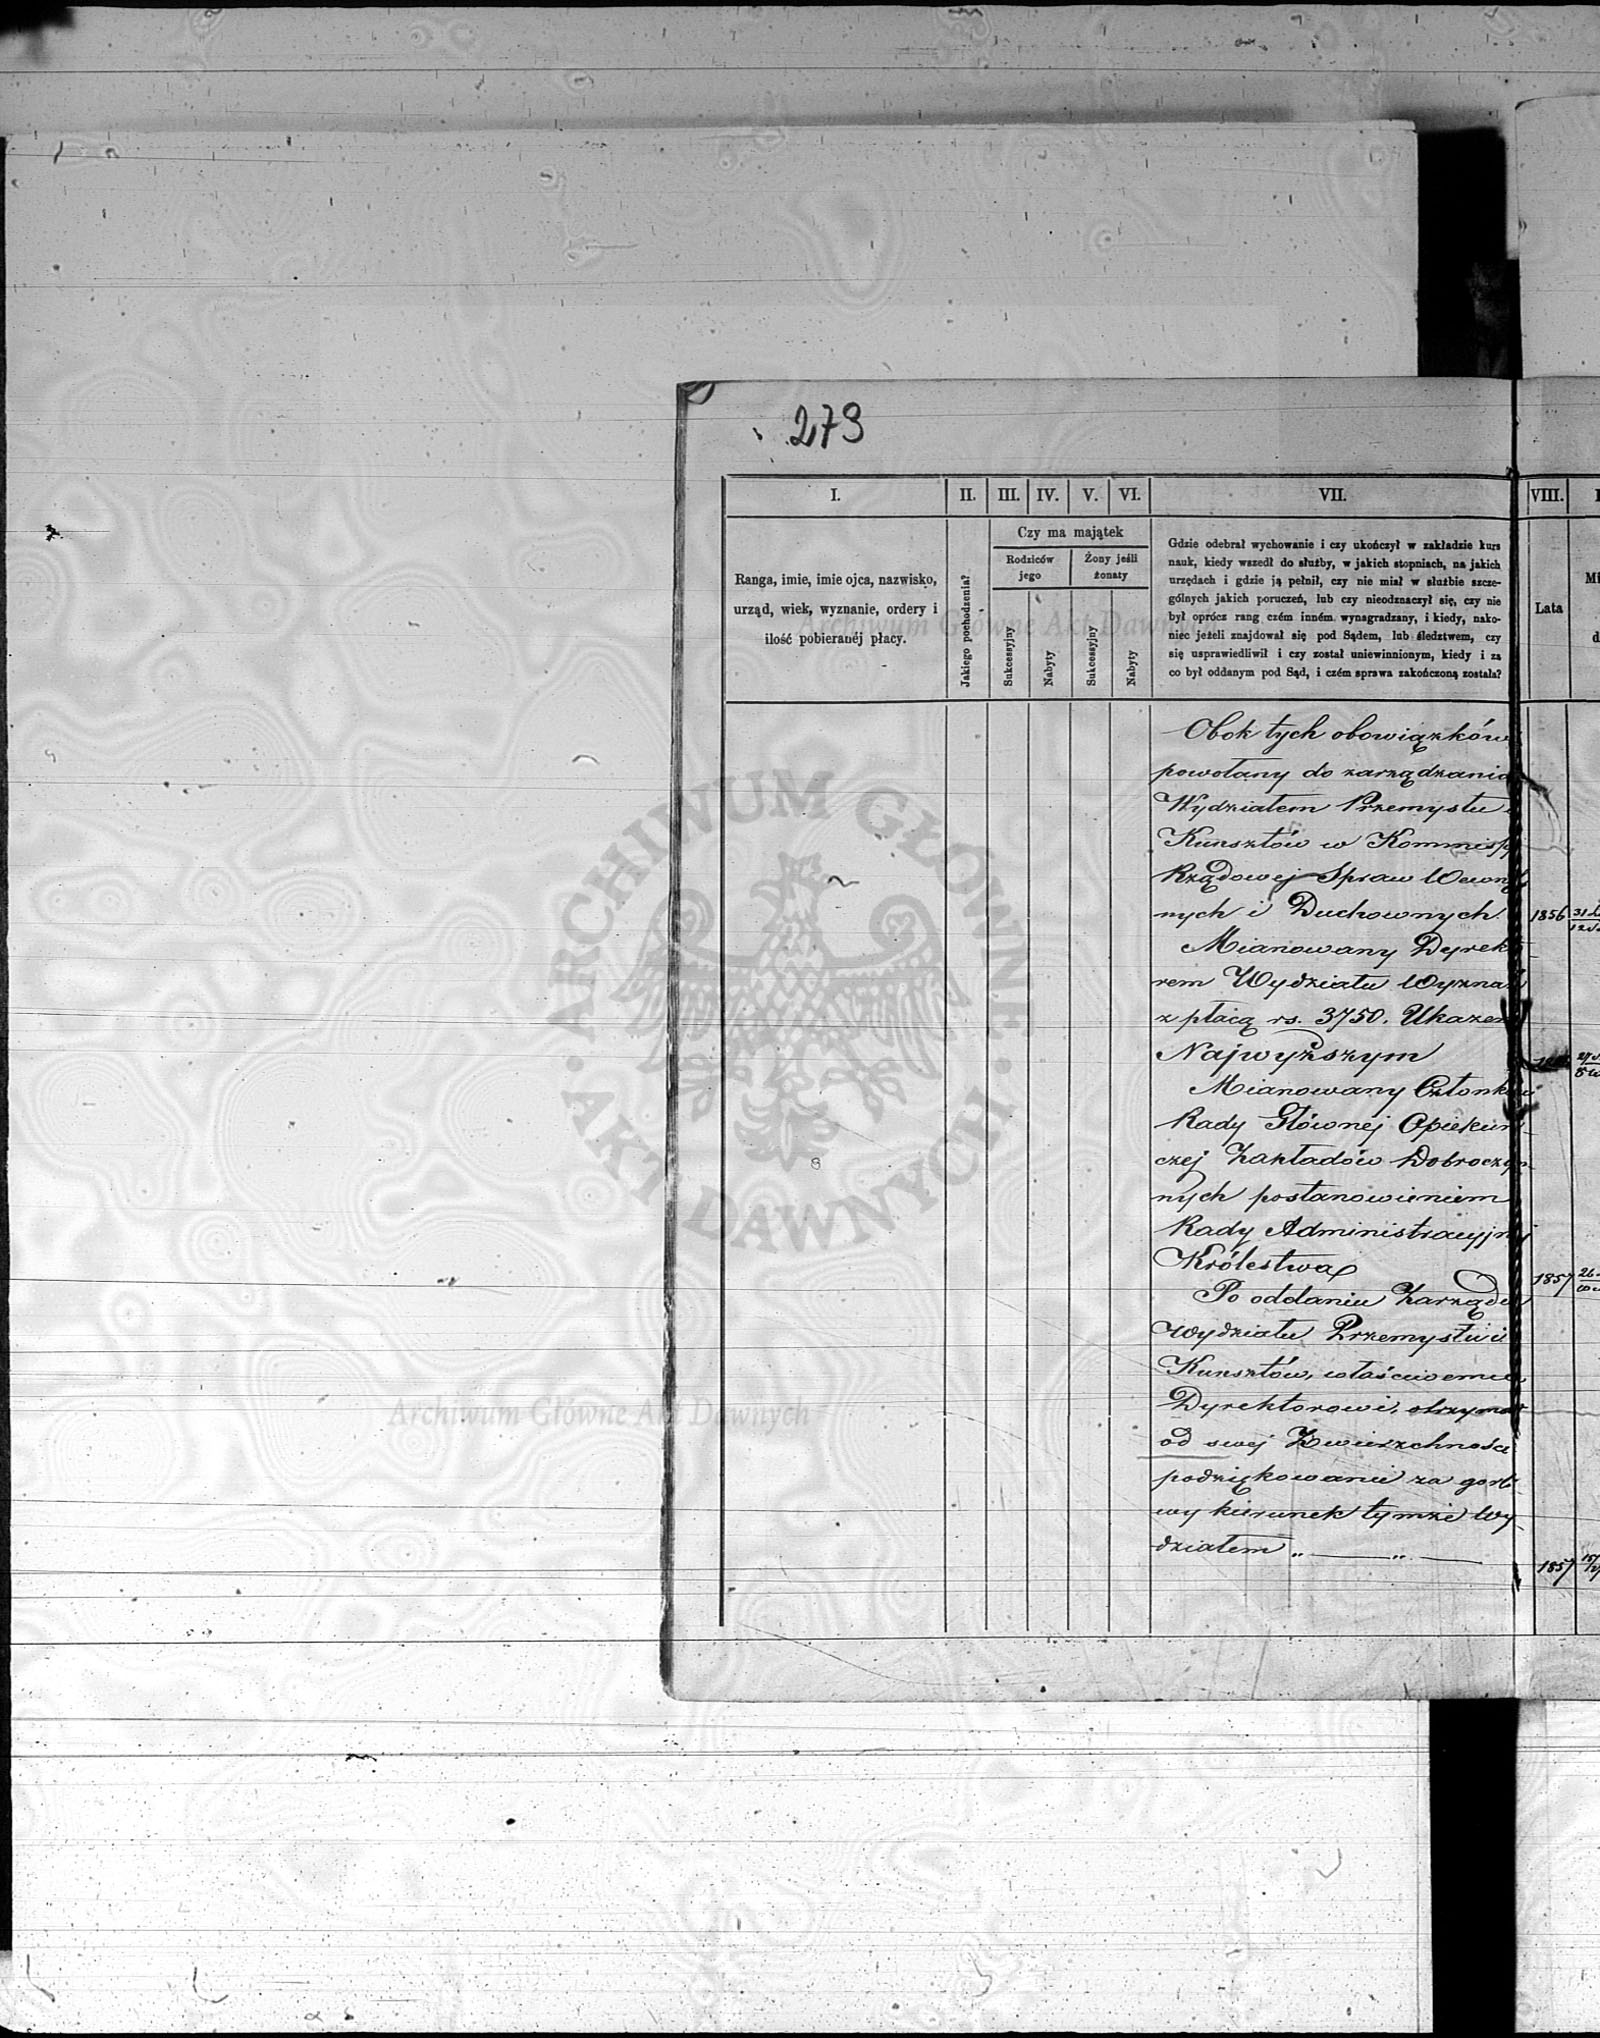 279
I. II. III. IV. V. VI. VII. VIII.
Ranga, imie, imie ojca, nazwisko,
urząd, wiek, wyznanie, ordery i
ilość pobieranéj płacy.
Jakiego pochodzenia?
Czy ma majątek
Rodziców
jego
Żony jeśli
żonaty
Sukcessyjny
Nabyty
Sukcessyjny
Nabyty
Gdzie odebrał wychowanie i czy ukończył w zakładzie kurs
nauk, kiedy wszedł do służby, w jakich stopniach, na jakich
urzędach i gdzie ją pełnił, czy nie miał w służbie szcze-
gólnych jakich poruczeń, lub czy nieodznaczył się, czy nie
był oprócz rang czém inném wynagradzany, i kiedy, nako-
niec jeżeli znajdował się pod Sądem, lub śledztwem, czy
się usprawiedliwił i czy został uniewinnionym, kiedy i za
co był oddanym pod Sąd, i czém sprawa zakończoną została?
Lata
Obok tych obowiązków
powołany do zarządzania
Wydziałem Przemysłu
Kunsztów w Kommissyi
Rządowej Spraw Wewnę
nych i Duchownych. 1856 31
Mianowany Dyrek
rem Wydziału Wyznań
z płacą rs. 3750. Ukazem
Najwyższym
Mianowany Członk
Rady Głównéj Opiekuń-
czej Zakładów Dobroczyn-
nych postanowieniem
Rady Administracyjnej
Królestwa 1857 26
Po oddaniu Zarządu
Wydziału Przemysłu i
Kunsztów, właściwemu
Dyrektorowi, otrzymał
od swej Zwierzchności
podziękowanie za gorli
wy kierunek tymże Wy-
działem „ — „ — 1857
ARCHIWUM GŁÓWNE · AKT DAWNYCH ·
Archiwum Główne Akt Dawnych
Archiwum Główne Akt Dawnych